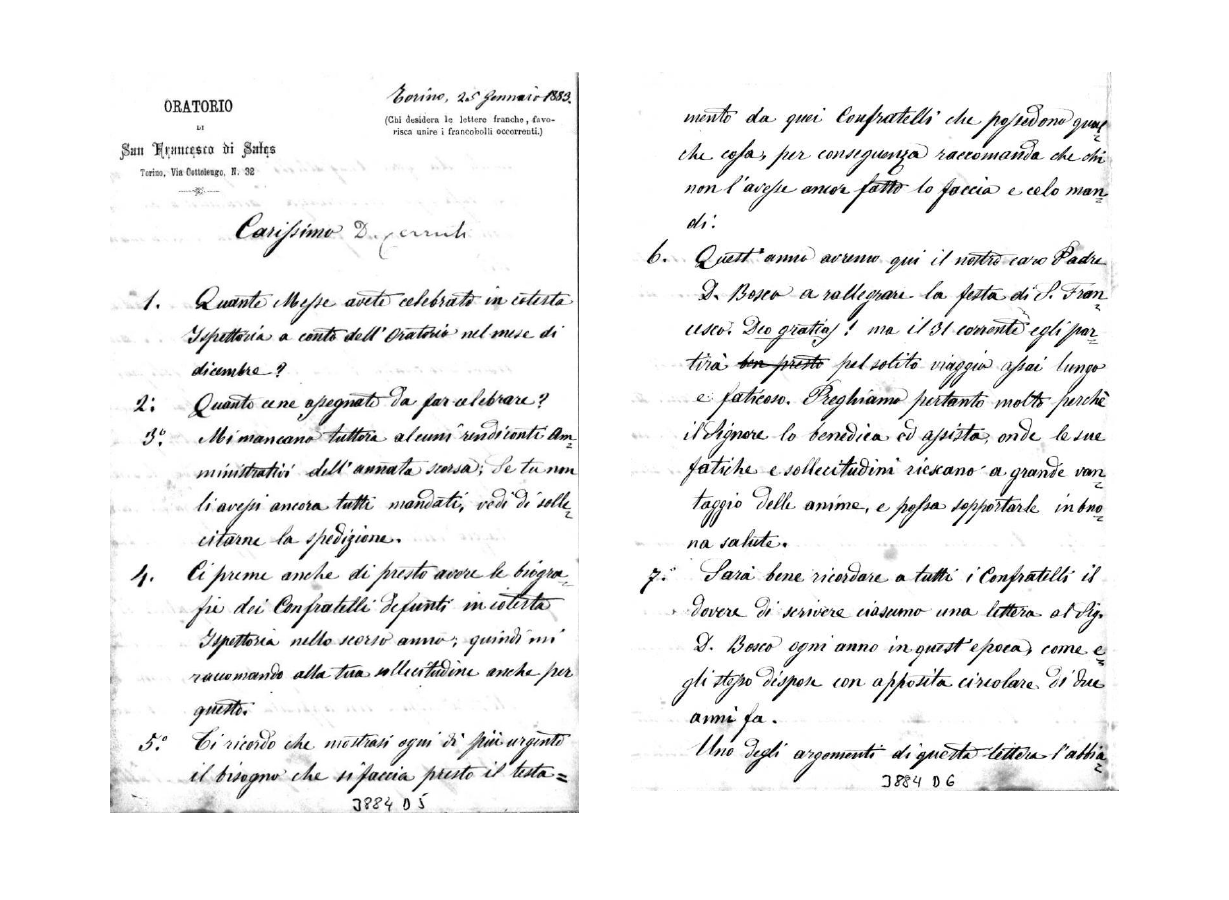 ORATORIO
DI
San Francesco di Sales
Torino, Via Cottolengo, N. 32
Torino, 25 Gennaio 1883.
(Chi desidera le lettere franche, favo-
risca unire i francobolli occorrenti.)
Carissimo D.
1. Quante Messe avete celebrato in cotesta
Ispettoria a conto dell'Oratorio nel mese di
dicembre?
2.° Quante ce ne assegnate da far celebrare?
3.° Mi mancano tuttora alcuni rendiconti Am=
ministrativi dell'annata scorsa; Se tu non
li avessi ancora tutti mandati, vedi di solle=
citarne la spedizione.
4. Ci preme anche di presto avere le biogra=
fie dei Confratelli defunti in cotesta
Ispettoria nello scorso anno; quindi mi
raccomando alla tua sollecitudine anche per
questo.
5.° Ti ricordo che mostrasi ogni dì più urgente
il bisogno che si faccia presto il testa=
3884 D 5
mento da quei Confratelli che possedono qual=
che cosa, per conseguenza raccomanda che chi
non l'avesse ancor fatto lo faccia e celo man=
di.
6. Quest'anno avremo qui il nostro caro Padre
D. Bosco a rallegrare la festa di S. Fran=
cesco. Deo gratias! ma il 31 corrente egli par=
tirà ben presto pel solito viaggio assai lungo
e faticoso. Preghiamo pertanto molto perchè
il Signore lo benedica ed assista, onde le sue
fatiche e sollecitudini riescano a grande van=
taggio delle anime, e possa sopportarle in buo=
na salute.
7.° Sarà bene ricordare a tutti i Confratelli il
dovere di scrivere ciascuno una lettera al Sig.
D. Bosco ogni anno in quest'epoca, come e=
gli stesso dispose con apposita circolare di due
anni fa.
Uno degli argomenti di questa lettera l'abbia=
3884 D 6